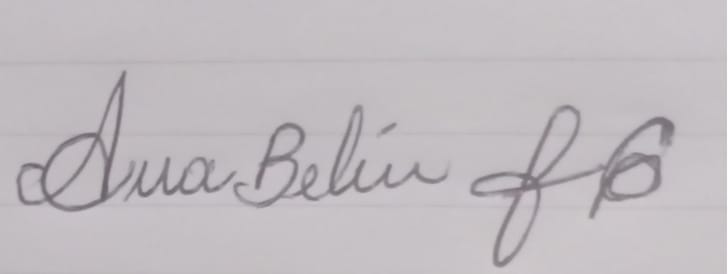 Ana Belin